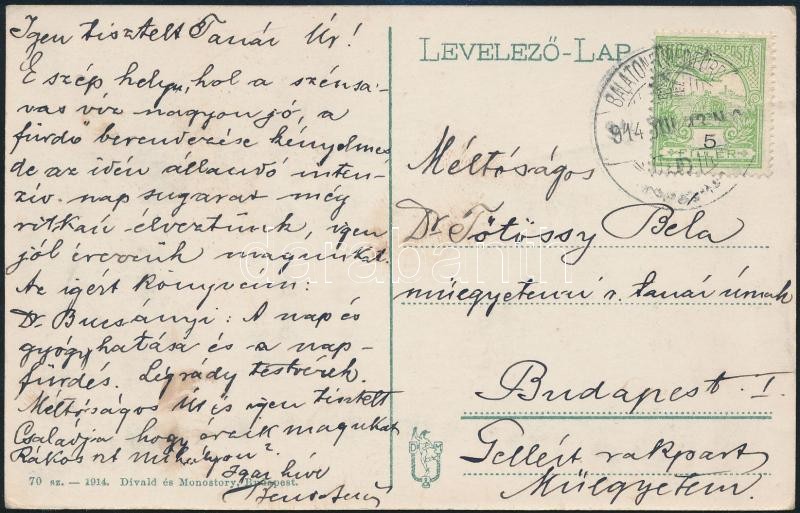 Igen tisztelt Tanár Úr!
E szép helyen, hol a szénsa-
vas víz nagyon jó, a
fürdő berendezése kényelmes
de az idén állandó inten-
zív nap sugarat még
ritkán élveztünk, igen
jól érezzük magunkat.
Az igért könyveim:
Dr Bucsányi: A nap és
gyógyhatása és a nap-
fürdés. Légrády testvérek.
Méltóságos Úr és igen tisztelt
Családja hogy érzik magukat
Rákosszt mihályon?
Igaz híve
70 sz. — 1914. Divald és Monostory, Budapest.
LEVELEZŐ-LAP
BALATON
914
5
FILLÉR
Méltóságos
Dr Tötössy Bela
műegyetemi r. tanár úrnak
Budapest. I.
Gellért rakpart
Műegyetem.
D M
darabanth